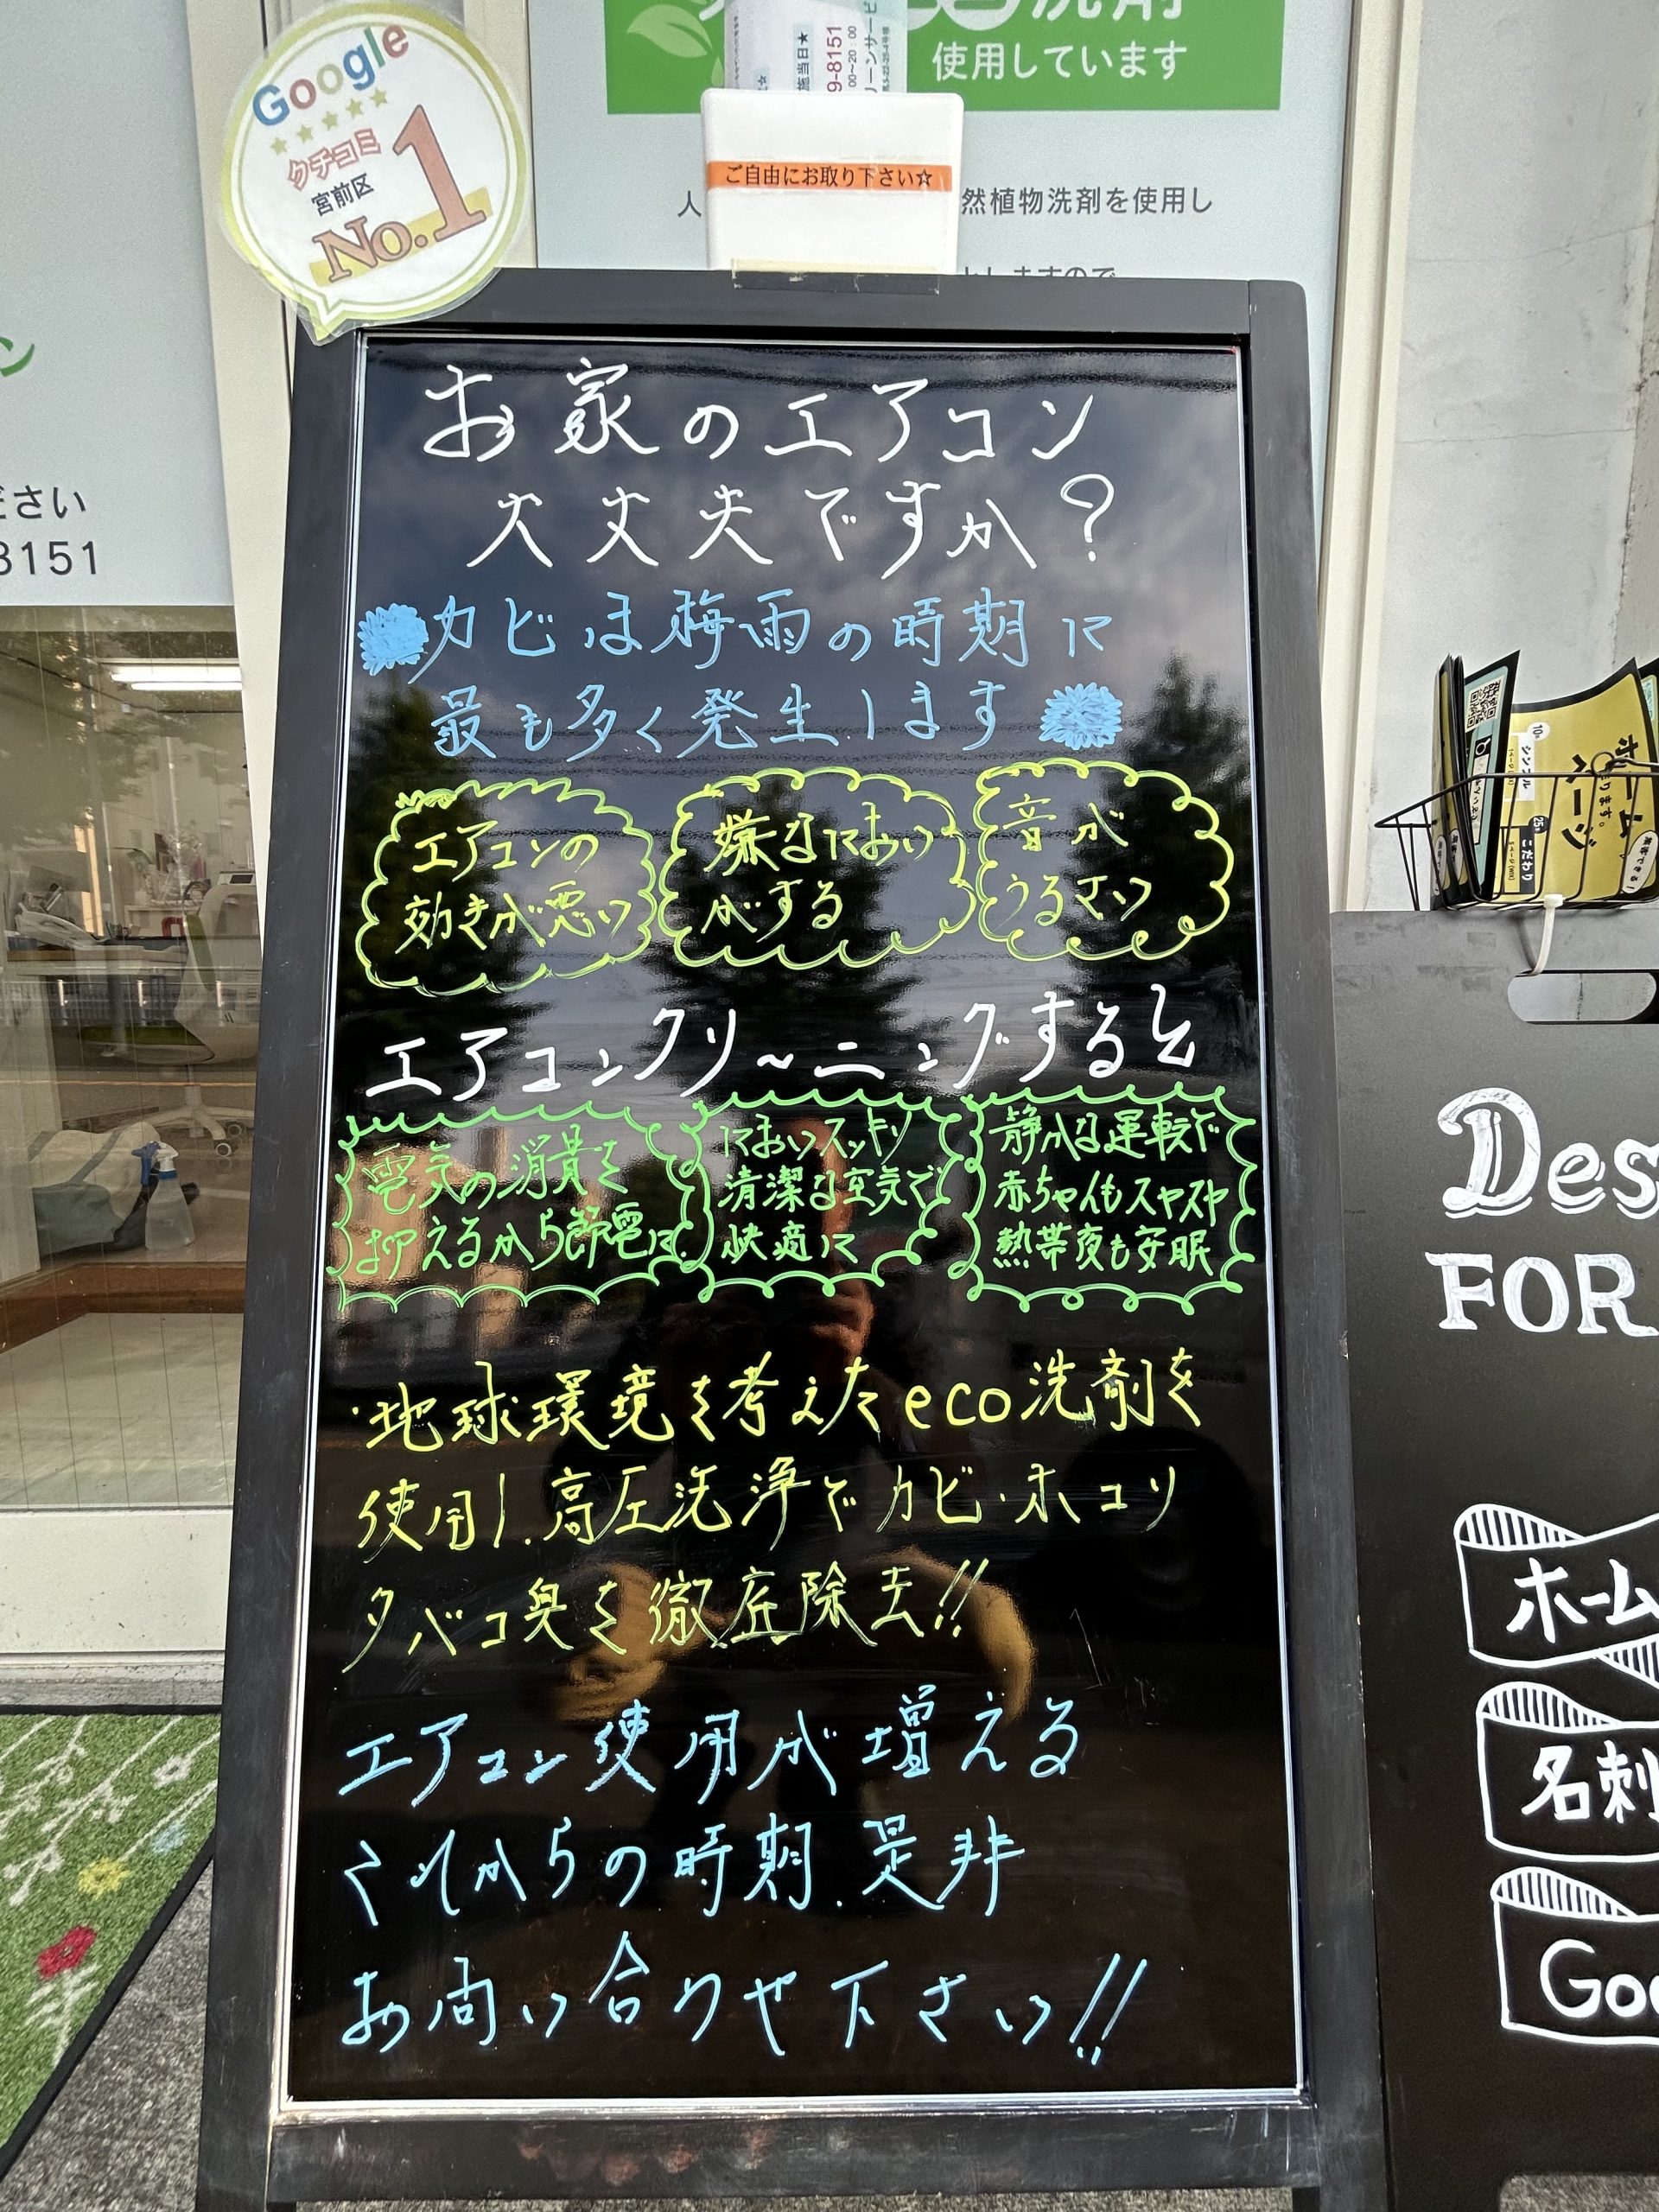 Google
クチコミ
宮前区
No.1
使用しています
施当日★
9-8151
00~20:00
ーンサービ
ご自由にお取り下さい☆
然植物洗剤を使用し
としますので
ン
ださい
8151
お家のエアコン
大丈夫ですか?
カビは梅雨の時期に
最も多く発生します
エアコンの
効きが悪い
嫌なにおい
がする
音が
うるさい
エアコンクリ～ニングすると
電気の消費を
抑えるから節電に
においスッキリ
清潔な空気で
快適に
静かな運転で
赤ちゃんもスヤスヤ
熱帯夜も安眠
・地球環境を考えたeco洗剤を
使用し、高圧洗浄でカビ・ホコリ
タバコ臭を徹底除去!!
エアコン使用が増える
これからの時期、是非
お問い合わせ下さい!!
ホーム
ページ
シンプル
こだわり
Des
FOR
ホーム
名刺
Goo